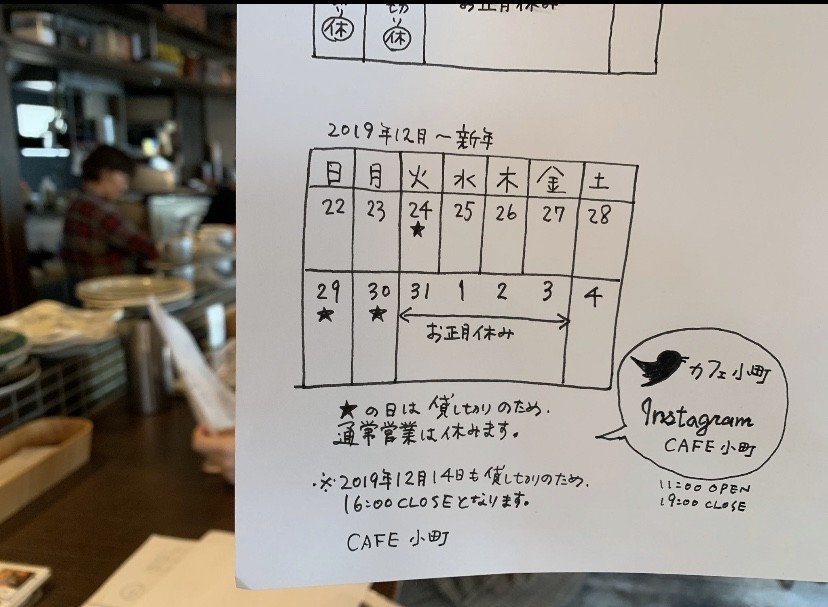 切り
休 休
お正月休み
2019年12月〜新年
日 月 火 水 木 金 土
22 23 24 25 26 27 28
★
29 30 31 1 2 3 4
★ ★
お正月休み
★の日は貸しきりのため.
通常営業は休みます。
※2019年12月14日も貸しきりのため.
16:00 CLOSEとなります。
CAFE 小町
カフェ小町
Instagram
CAFE 小町
11:00 OPEN
19:00 CLOSE